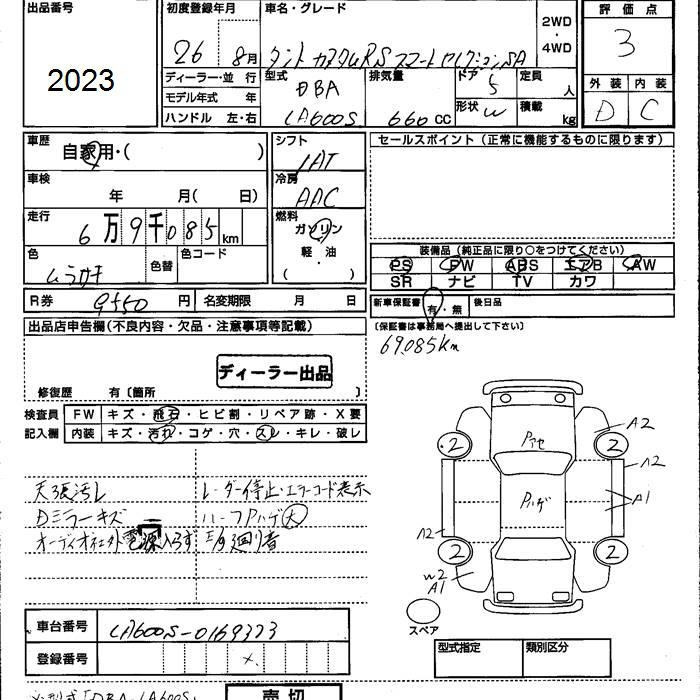 出品番号
2023
初度登録年月
26 8月
車名・グレード
タント カスタムRS スマートセレクションSA
2WD
・
4WD
評価点
3
外装 内装
D C
ディーラー・並 行
モデル年式 年
ハンドル 左・右
型式
DBA
LA600S
排気量
660 CC
ドア
5
形状 W
定員
人
積載
kg
車歴
自家用・( )
車検
年 月( 日)
走行
6万9千085km
色
ムラサキ
色替
色コード
シフト
IAT
冷房
AAC
燃料
ガソリン
軽 油
( ・ )
R券 9450 円 名変期限 月 日
セールスポイント(正常に機能するものに限ります)
装備品(純正品に限り○をつけてください)
PS PW ABS エアB AW
SR ナビ TV カワ
新車保証書 有・無 後日品
(保証書は事務局へ提出して下さい)
69,085km
出品店申告欄(不良内容・欠品・注意事項等記載)
ディーラー出品
修復歴 有〔箇所 〕
検査員 FW キズ・飛石・ヒビ割・リペア跡・X要
記入欄 内装 キズ・汚れ・コゲ・穴・スレ・キレ・破レ
天張汚レ
レーダー停止・エラーコード表示
Dミラーキズ
ルーフPハゲ大
オーディオ社外電源入らず
Pアセ
Pハゲ
2
2
2
2
A2
A2
A1
A2
W2
A1
スペア
車台番号 LA600S-0169373
登録番号
型式指定 類別区分
型式「DBA-LA600S」
売切